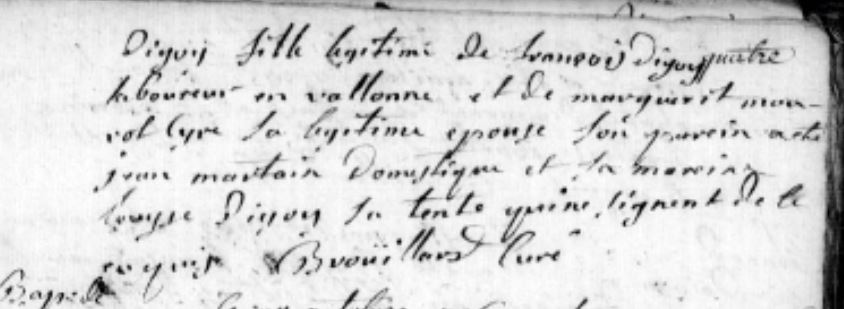 Digoy fille legitime de francois Digoy maitre
laboureur en vallonne et de marguerit mou-
rot Cyre sa legitime epouse son parein a ete
jean martain Domestique et sa mareine
louyse Digoy sa tente qui ne signent de ce
enquis Broüillard Curé
Bapt de